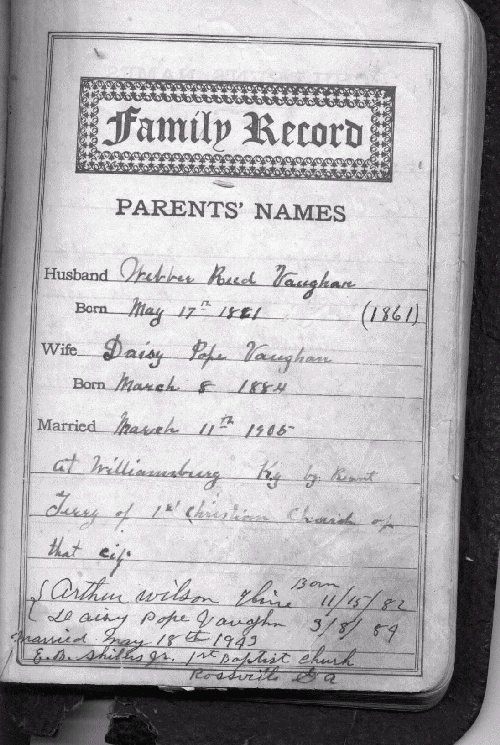 Family Record
PARENTS' NAMES
Husband Webber Reed Vaughan
Born May 17th 1881 (1861)
Wife Daisy Pope Vaughan
Born March 8 1884
Married March 11th 1905
at Williamsburg Ky by
Terry of 1st Christian Church of
that city
Arthur Wilson Born 11/15/82
Daisy Pope Vaughn 3/8/84
Married May 18th 1943
E.B. Shivers Jr. 1st Baptist Church
Rossville Ga